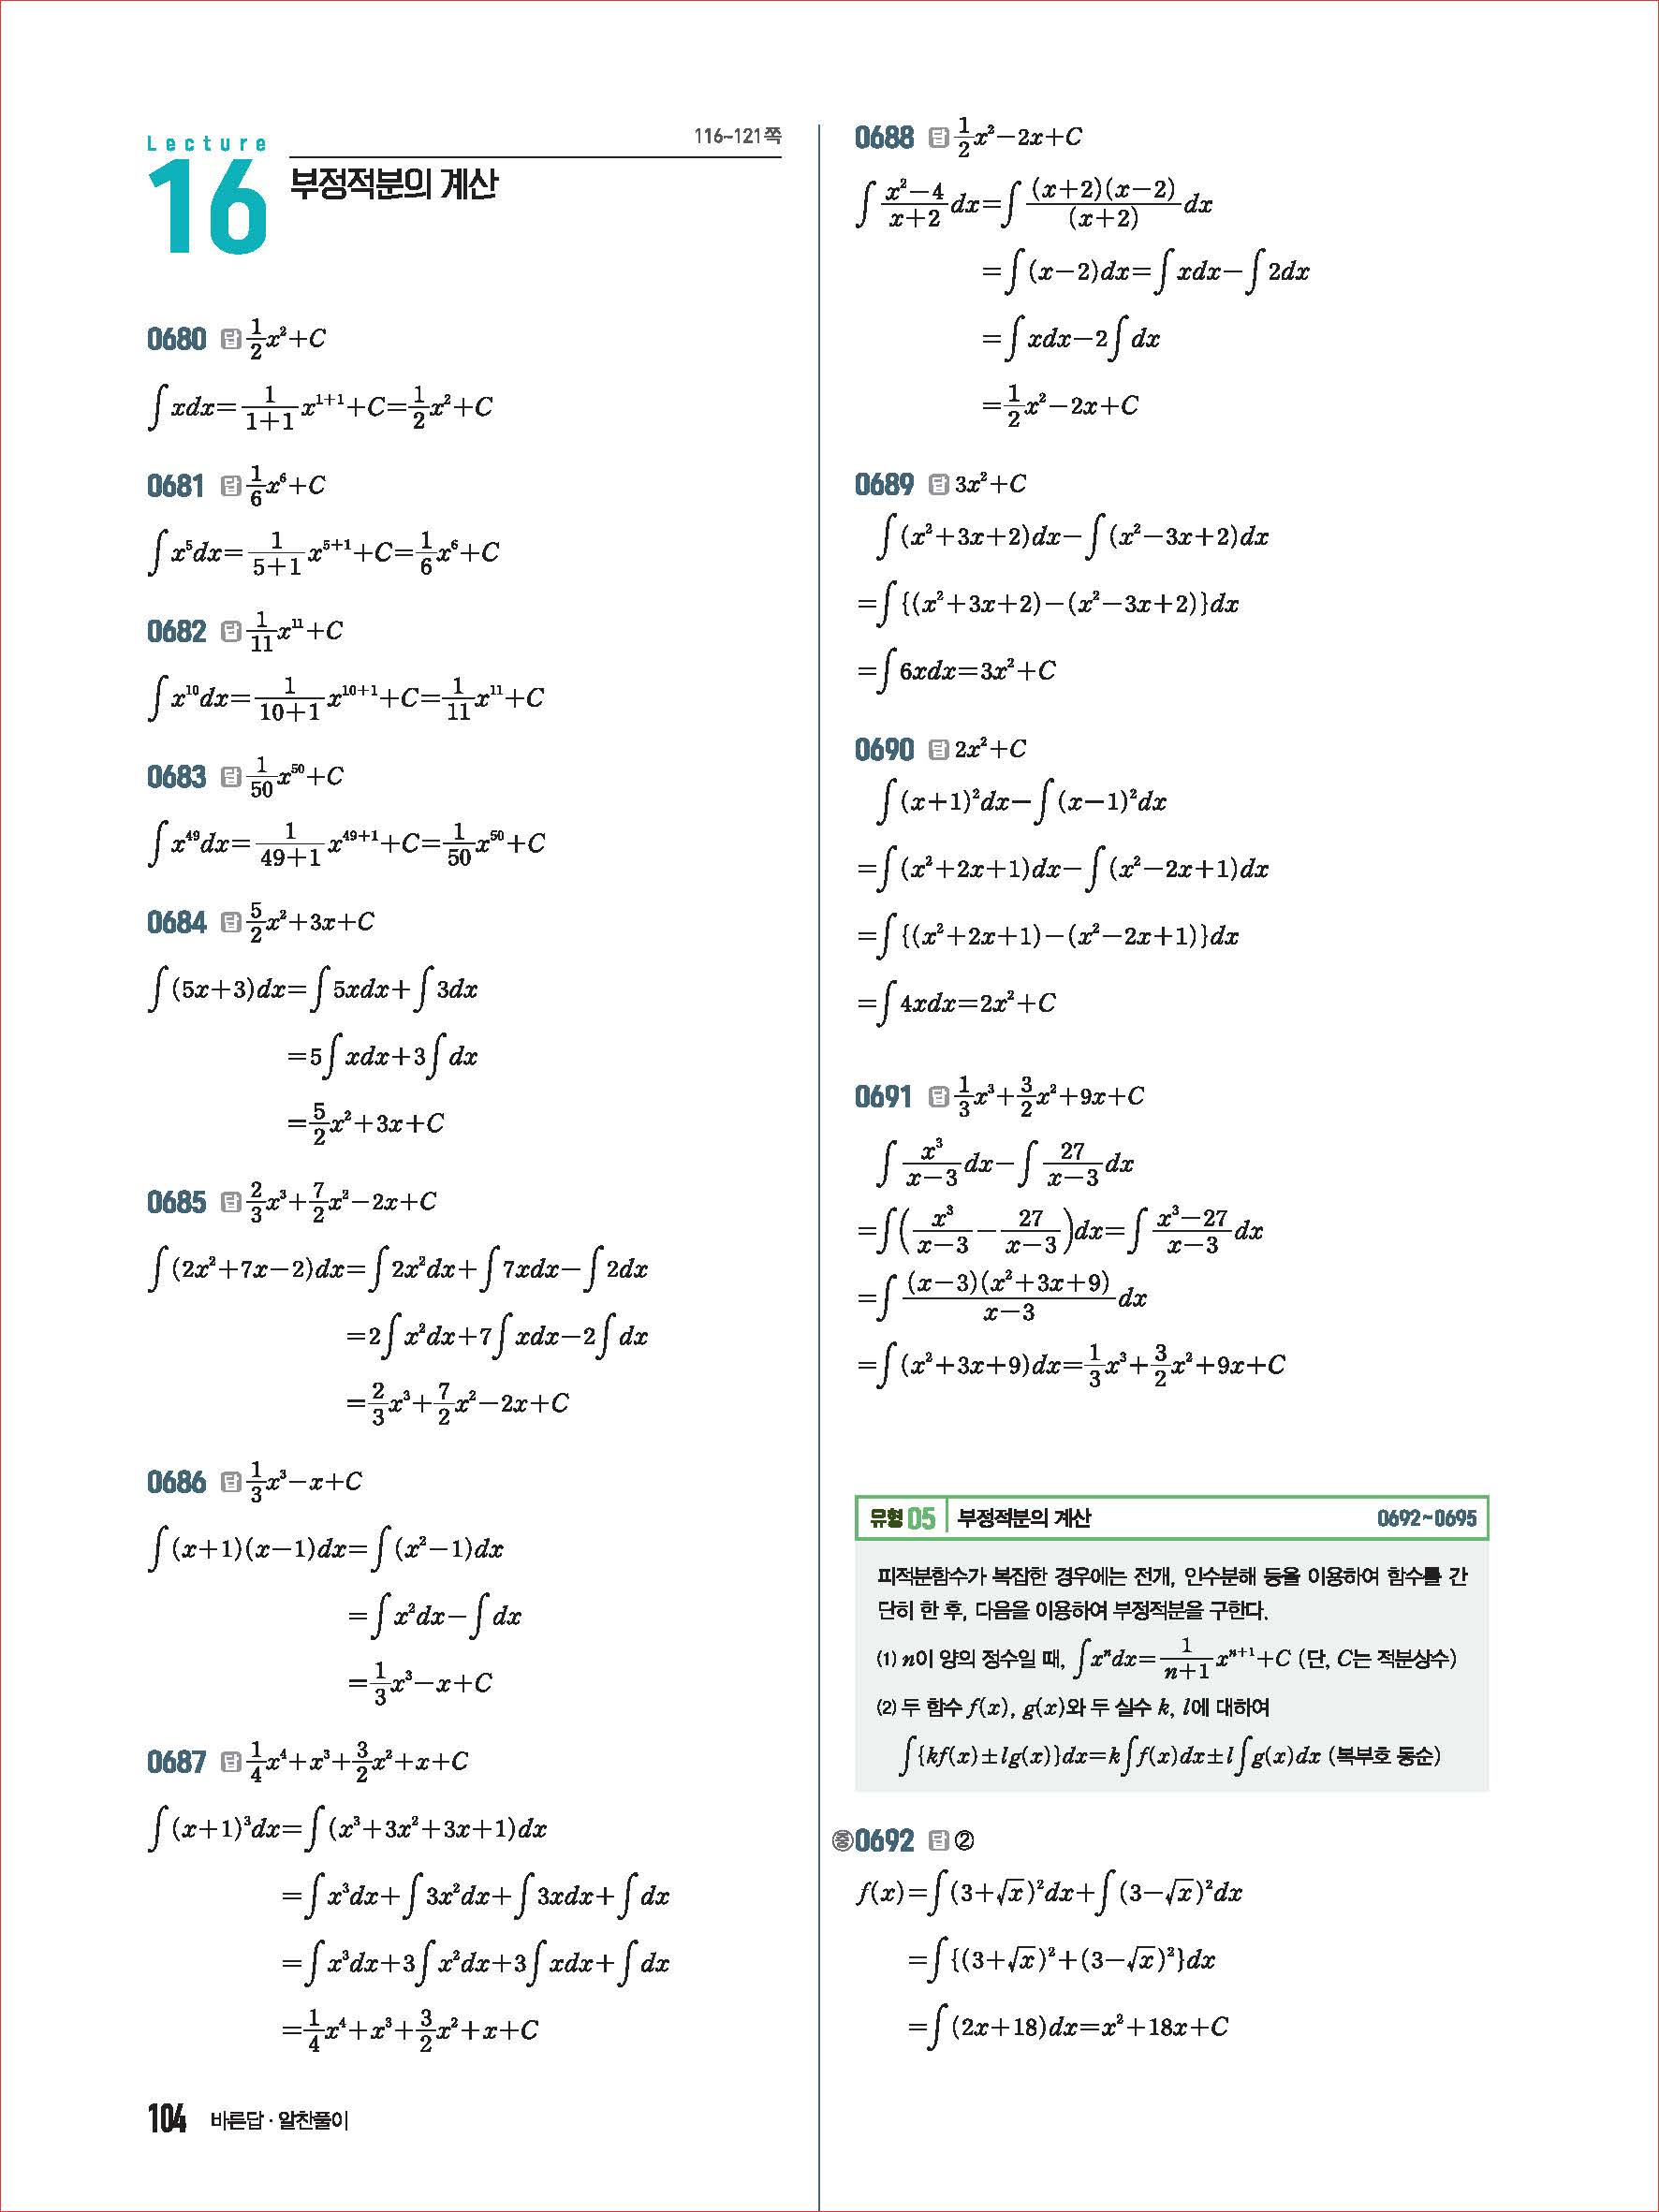 Lecture
16
116~121쪽
부정적분의 계산
0680 답 1/2 x²+C
∫xdx=1/(1+1) x¹⁺¹+C=1/2 x²+C
0681 답 1/6 x⁶+C
∫x⁵dx=1/(5+1) x⁵⁺¹+C=1/6 x⁶+C
0682 답 1/11 x¹¹+C
∫x¹⁰dx=1/(10+1) x¹⁰⁺¹+C=1/11 x¹¹+C
0683 답 1/50 x⁵⁰+C
∫x⁴⁹dx=1/(49+1) x⁴⁹⁺¹+C=1/50 x⁵⁰+C
0684 답 5/2 x²+3x+C
∫(5x+3)dx=∫5xdx+∫3dx
=5∫xdx+3∫dx
=5/2 x²+3x+C
0685 답 2/3 x³+7/2 x²-2x+C
∫(2x²+7x-2)dx=∫2x²dx+∫7xdx-∫2dx
=2∫x²dx+7∫xdx-2∫dx
=2/3 x³+7/2 x²-2x+C
0686 답 1/3 x³-x+C
∫(x+1)(x-1)dx=∫(x²-1)dx
=∫x²dx-∫dx
=1/3 x³-x+C
0687 답 1/4 x⁴+x³+3/2 x²+x+C
∫(x+1)³dx=∫(x³+3x²+3x+1)dx
=∫x³dx+∫3x²dx+∫3xdx+∫dx
=∫x³dx+3∫x²dx+3∫xdx+∫dx
=1/4 x⁴+x³+3/2 x²+x+C
104 바른답 · 알찬풀이
0688 답 1/2 x²-2x+C
∫(x²-4)/(x+2) dx=∫(x+2)(x-2)/(x+2) dx
=∫(x-2)dx=∫xdx-∫2dx
=∫xdx-2∫dx
=1/2 x²-2x+C
0689 답 3x²+C
∫(x²+3x+2)dx-∫(x²-3x+2)dx
=∫{(x²+3x+2)-(x²-3x+2)}dx
=∫6xdx=3x²+C
0690 답 2x²+C
∫(x+1)²dx-∫(x-1)²dx
=∫(x²+2x+1)dx-∫(x²-2x+1)dx
=∫{(x²+2x+1)-(x²-2x+1)}dx
=∫4xdx=2x²+C
0691 답 1/3 x³+3/2 x²+9x+C
∫x³/(x-3) dx-∫27/(x-3) dx
=∫(x³/(x-3) - 27/(x-3))dx=∫(x³-27)/(x-3) dx
=∫(x-3)(x²+3x+9)/(x-3) dx
=∫(x²+3x+9)dx=1/3 x³+3/2 x²+9x+C
유형 05 부정적분의 계산 0692~0695
피적분함수가 복잡한 경우에는 전개, 인수분해 등을 이용하여 함수를 간
단히 한 후, 다음을 이용하여 부정적분을 구한다.
⑴ n이 양의 정수일 때, ∫xⁿdx=1/(n+1) xⁿ⁺¹+C (단, C는 적분상수)
⑵ 두 함수 f(x), g(x)와 두 실수 k, l에 대하여
∫{kf(x)±lg(x)}dx=k∫f(x)dx±l∫g(x)dx (복부호 동순)
중 0692 답 ②
f(x)=∫(3+√x)²dx+∫(3-√x)²dx
=∫{(3+√x)²+(3-√x)²}dx
=∫(2x+18)dx=x²+18x+C